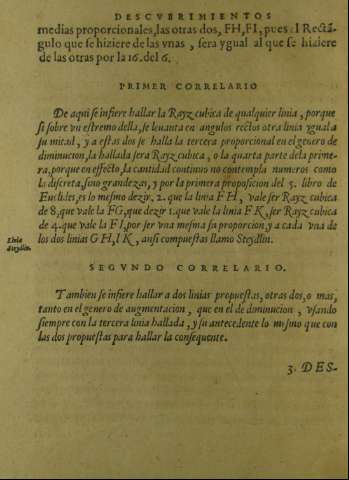 DESCVBRIMIENTOS
medias proporcionales, las otras dos, FH, FI, pues el Rectã-
gulo que se hiziere de las vnas, sera ygual al que se hiziere
de las otras por la 16. del 6.
PRIMER CORRELARIO
De aqui se infiere hallar la Rayz cubica de qualquier linia, porque
si sobre vn estremo della, se leuanta en angulos rectos otra linia ygual a
su mitad, y a estas dos se halla la tercera proporcional en el genero de
diminucion, la hallada sera Rayz cubica, o la quarta parte dela prime-
ra, porque en effecto, la cantidad continuo no contempla numeros como
la discreta, sino grandezas, y por la primera proposicion del 5. libro de
Euclides, es lo mesmo dezir, 2. que la linia FH, vale ser Rayz cubica
de 8, que vale la FG, que dezir 1. que vale la linia FK, ser Rayz cubica
de 4. que vale la FI, por ser vna mesma su proporcion, y a cada vna de
Linia
Steydlin.
los dos linias GH, IK, ansi compuestas llamo Steydlin.
SEGVNDO CORRELARIO.
Tambien se infiere hallar a dos linias propuestas, otras dos, o mas,
tanto en el genero de augmentacion, que en el de diminucion, vsando
siempre con la tercera linia hallada, y su antecedente lo mesmo que con
las dos propuestas para hallar la consequente.
3. DES-